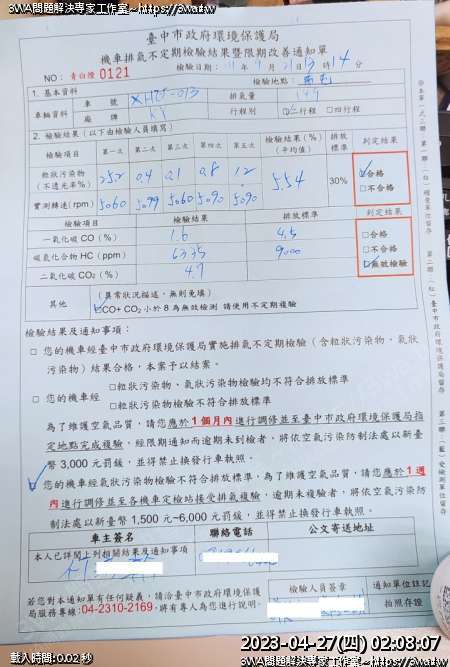 3WA問題解決專家工作室~shaowhat3wa
臺中市政府環境保護局
機車排氣不定期檢驗結果暨限期改善通知單
檢驗日期：
NO：青白煙 0121
檢驗地點：
1. 基本資料
車輛資料
車 號
排氣量
廠 牌
行程別 二行程 □四行程
2. 檢驗結果（以下由檢驗人員填寫）
檢驗項目 第一次 第二次 第三次 第四次 第五次 檢驗結果(%)(平均值) 排放標準 判定結果
粒狀污染物(不透光率%) 25.2 0.4 0.1 0.8 1.2 5.54 30% ☑合格
□不合格
實測轉速(rpm) 5060 5099 5060 5090 5090
檢驗項目 檢驗結果 排放標準 判定結果
一氧化碳 CO（%） 1.6 4.5 □合格
碳氫化合物 HC（ppm） 6335 9000 □不合格
二氧化碳 CO₂（%） 4.7 ☑無效檢驗
其他
（異常狀況描述，無則免填）
☑CO+ CO₂ 小於 8 為無效檢測 請使用不定期複驗
檢驗結果及通知事項：
□ 您的機車經臺中市政府環境保護局實施排氣不定期檢驗（含粒狀污染物、氣狀
污染物）結果合格，本案予以結案。
□ 您的機車經
□粒狀污染物、氣狀污染物檢驗均不符合排放標準
□粒狀污染物檢驗不符合排放標準
為了維護空氣品質，請您應於1個月內進行調修並至臺中市政府環境保護局指
定地點完成複驗，經限期通知而逾期未到檢者，將依空氣污染防制法處以新臺
幣 3,000 元罰鍰，並得禁止換發行車執照。
☑ 您的機車經氣狀污染物檢驗不符合排放標準，為了維護空氣品質，請您應於1週
內進行調修並至各機車定檢站接受排氣複驗，逾期未複驗者，將依空氣污染防
制法處以新臺幣 1,500 元~6,000 元罰鍰，並得禁止換發行車執照。
車主簽名 聯絡電話 公文寄送地址
本人已詳閱上列相關結果及通知事項
若您對本通知單有任何疑義，請洽臺中市政府環境保護
局服務專線:04-2310-2169，將有專人為您進行說明。
檢驗人員簽章
通知單位註記
拍照存證
2023-04-27(四) 02:08:07
載入時間:0.02 秒
3WA問題解決專家工作室~shaowhat3wa